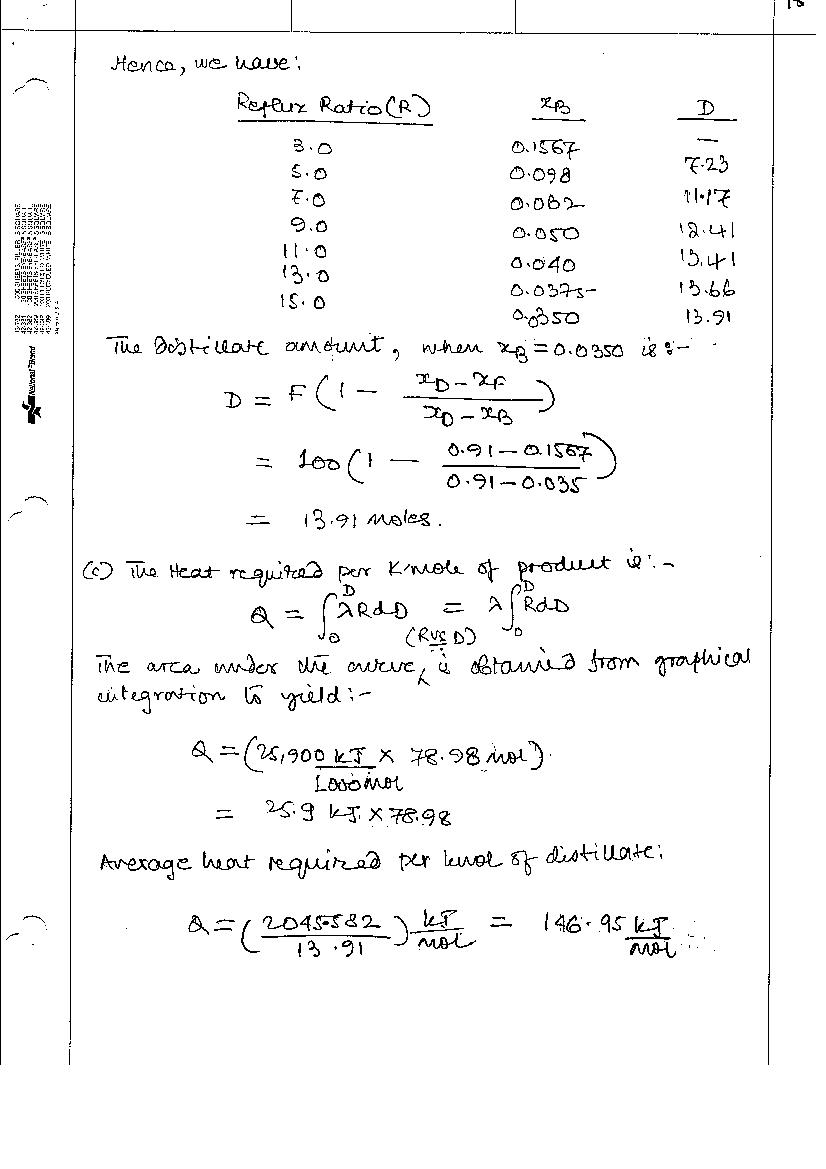 Hence, we have:
Reflux Ratio (R) xB D
3.0 0.1567 —
5.0 0.098 7.23
7.0 0.062 11.17
9.0 0.050 12.41
11.0 0.040 13.41
13.0 0.0375 13.66
15.0 0.0350 13.91
The Distillate amount, when xB = 0.0350 is :-
D = F (1 - (xD - xF)/(xD - xB))
= 100 (1 - (0.91 - 0.1567)/(0.91 - 0.035))
= 13.91 moles.
(c) The Heat required per Kmole of product is :-
Q = ∫₀ᴰ λRdD = λ ∫₀ᴰ RdD
(R vs D)
The area under the curve, is obtained from graphical
integration to yield :-
Q = (25,900 kJ/1000 mol × 78.98 mol)
= 25.9 kJ × 78.98
Average heat required per kmol of distillate:
Q = (2045.582/13.91) kJ/mol = 146.95 kJ/mol
National Brand